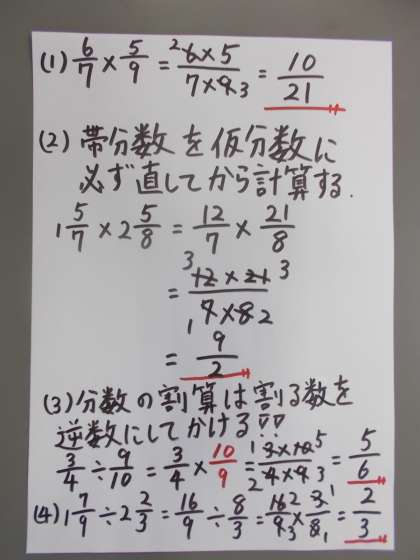 (1) 6/7 × 5/9 = ²6×5/7×9₃ = 10/21
(2) 帯分数を仮分数に
必ず直してから計算する.
1 5/7 × 2 5/8 = 12/7 × 21/8
= ³12×21³/₁7×8₂
= 9/2
(3) 分数の割算は割る数を
逆数にしてかける!!
3/4 ÷ 9/10 = 3/4 × 10/9 = ¹3×10⁵/₂4×9₃ = 5/6
(4) 1 7/9 ÷ 2 2/3 = 16/9 ÷ 8/3 = 16²/9₃ × 3¹/8₁ = 2/3